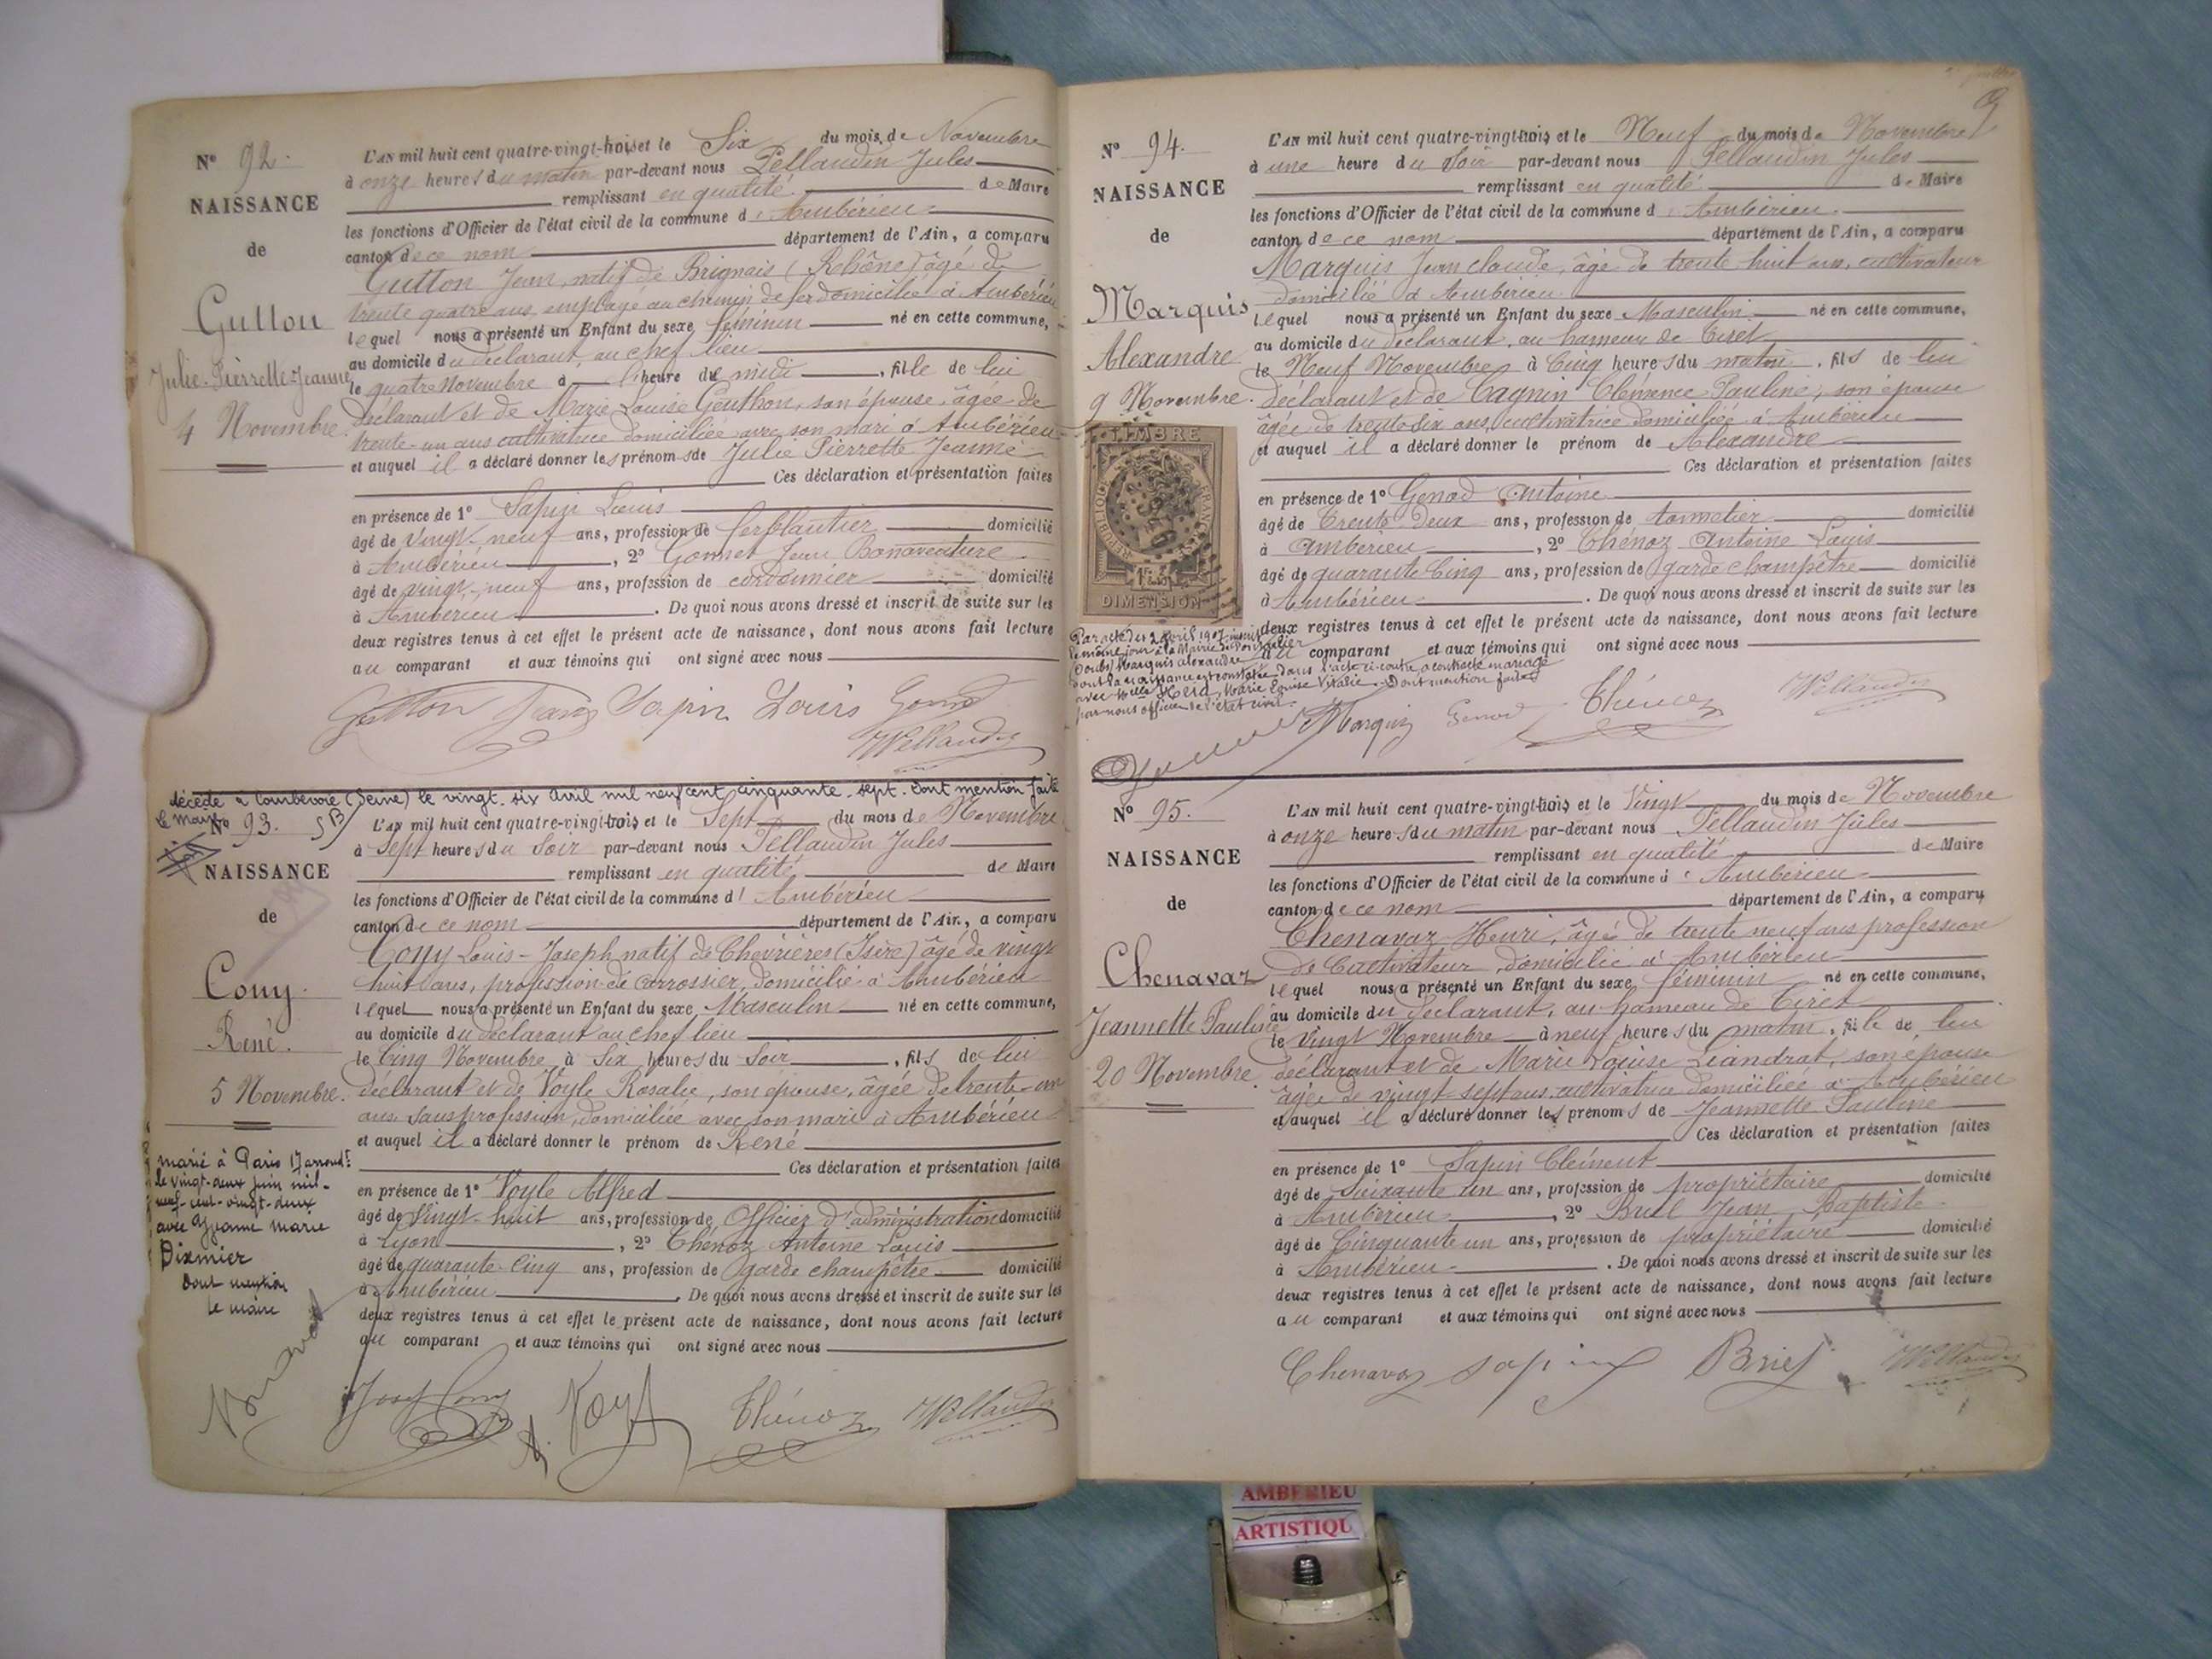 N° 92.
NAISSANCE
de
Gutton
Julie-Pierrette-Jeanne
4 Novembre.
L'AN mil huit cent quatre-vingt-trois et le Six du mois de Novembre
à onze heures du matin par-devant nous Pellaudin Jules
remplissant en qualité de Maire
les fonctions d'Officier de l'état civil de la commune d'Ambérieu
canton de ce nom département de l'Ain, a comparu
Gutton Jean, natif de Brignais (Rhône) âgé de
trente quatre ans, employé au chemin de fer domicilié à Ambérieu
lequel nous a présenté un Enfant du sexe féminin né en cette commune,
au domicile du déclarant, au chef lieu
le quatre Novembre à heure de midi, fille de lui
déclarant et de Marie Louise Geuthon, son épouse, âgée de
trente-un ans cultivatrice domiciliée avec son mari à Ambérieu
et auquel il a déclaré donner les prénoms de Julie Pierrette Jeanne
Ces déclaration et présentation faites
en présence de 1° Sapin Louis
âgé de vingt-neuf ans, profession de ferblantier domicilié
à Ambérieu, 2° Gonnet Jean Bonaventure
âgé de vingt-neuf ans, profession de cordonnier domicilié
à Ambérieu. De quoi nous avons dressé et inscrit de suite sur les
deux registres tenus à cet effet le présent acte de naissance, dont nous avons fait lecture
au comparant et aux témoins qui ont signé avec nous
Gutton Jean Sapin Louis Gonnet
décédé à Courbevoie (Seine) le vingt-six avril mil neuf cent cinquante-sept. Dont mention faite
Le maire
N° 93.
NAISSANCE
de
Cony
René.
5 Novembre.
marié à Paris 17 arrondt
le vingt-deux juin mil-
neuf-cent-vingt-deux
avec Yvonne Marie
Dixmier
Dont mention
le maire
L'AN mil huit cent quatre-vingt-trois et le Sept du mois de Novembre
à Sept heures du Soir par-devant nous Pellaudin Jules
remplissant en qualité de Maire
les fonctions d'Officier de l'état civil de la commune d'Ambérieu
canton de ce nom département de l'Ain, a comparu
Cony Louis-Joseph natif de Chevrières (Isère) âgé de vingt
huit ans, profession de carrossier, domicilié à Ambérieu
lequel nous a présenté un Enfant du sexe Masculin né en cette commune,
au domicile du déclarant au chef lieu
le Cinq Novembre à Six heures du Soir, fils de lui
déclarant et de Voyle Rosalie, son épouse, âgée de trente-un
ans sans profession, domiciliée avec son mari à Ambérieu
et auquel il a déclaré donner le prénom de René
Ces déclaration et présentation faites
en présence de 1° Voyle Alfred
âgé de Vingt-huit ans, profession de Officier d'administration domicilié
à Lyon, 2° Chénoz Antoine Louis
âgé de quarante-cinq ans, profession de garde champêtre domicilié
à Ambérieu. De quoi nous avons dressé et inscrit de suite sur les
deux registres tenus à cet effet le présent acte de naissance, dont nous avons fait lecture
au comparant et aux témoins qui ont signé avec nous
Chénoz
N° 94.
NAISSANCE
de
Marquis
Alexandre
9 Novembre.
TIMBRE
REPUBLIQUE FRANCAISE
DIMENSION
Par acte du 2 avril 1907 inscrit
le même jour à la Mairie de Pontarlier
(Doubs) Marquis alexandre
dont la naissance est constatée dans l'acte ci-contre a contracté mariage
avec Melle Marie Louise Vitalie. Dont mention faite
par nous officier de l'état civil.
L'AN mil huit cent quatre-vingt-trois et le Neuf du mois de Novembre
à une heure du Soir par-devant nous Pellaudin Jules
remplissant en qualité de Maire
les fonctions d'Officier de l'état civil de la commune d'Ambérieu
canton de ce nom département de l'Ain, a comparu
Marquis Jean claude, âgé de trente huit ans, cultivateur
domicilié à Ambérieu
lequel nous a présenté un Enfant du sexe Masculin né en cette commune,
au domicile du déclarant, au hameau de Tiret
le Neuf Novembre à Cinq heures du matin, fils de lui
déclarant et de Cagnin Clémence Pauline, son épouse
âgée de trente-six ans, cultivatrice domiciliée à Ambérieu
et auquel il a déclaré donner le prénom de Alexandre
Ces déclaration et présentation faites
en présence de 1° Genod Antoine
âgé de Trente-Deux ans, profession de domicilié
à Ambérieu, 2° Chénoz Antoine Louis
âgé de quarante Cinq ans, profession de garde champêtre domicilié
à Ambérieu. De quoi nous avons dressé et inscrit de suite sur les
deux registres tenus à cet effet le présent acte de naissance, dont nous avons fait lecture
au comparant et aux témoins qui ont signé avec nous
Marquis Genod Chénoz
N° 95.
NAISSANCE
de
Chenavaz
Jeannette Pauline
20 Novembre.
L'AN mil huit cent quatre-vingt-trois et le Vingt du mois de Novembre
à onze heures du matin par-devant nous Pellaudin Jules
remplissant en qualité de Maire
les fonctions d'Officier de l'état civil de la commune d'Ambérieu
canton de ce nom département de l'Ain, a comparu
Chenavaz Henri, âgé de trente neuf ans profession
de Cultivateur, domicilié à Ambérieu
lequel nous a présenté un Enfant du sexe féminin né en cette commune,
au domicile du déclarant, au hameau de Tiret
le Vingt Novembre à neuf heures du matin, fille de lui
déclarant et de Marie Louise Liandrat, son épouse
âgée de vingt-sept ans, cultivatrice domiciliée à Ambérieu
et auquel il a déclaré donner les prénoms de Jeannette Pauline
Ces déclaration et présentation faites
en présence de 1° Sapin Clément
âgé de Soixante un ans, profession de propriétaire domicilié
à Ambérieu, 2° Jean Baptiste
âgé de Cinquante un ans, profession de propriétaire domicilié
à Ambérieu. De quoi nous avons dressé et inscrit de suite sur les
deux registres tenus à cet effet le présent acte de naissance, dont nous avons fait lecture
au comparant et aux témoins qui ont signé avec nous
Chenavaz Sapin
AMBERIEU
ARTISTIQU